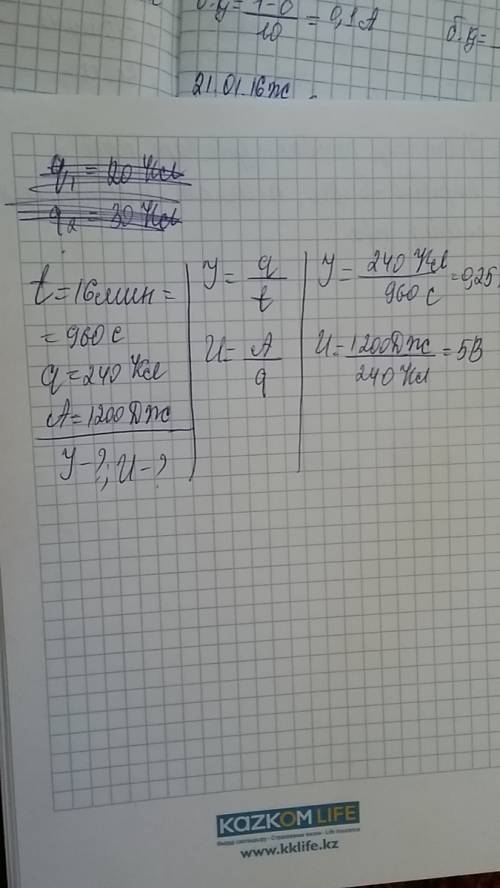 б. У = 1-0 / 10 = 0,1 А
б. У =
21.01.16 ж
q₁ = 20 Кл
q₂ = 30 Кл
t = 16 мин =
= 960 с
q = 240 Кл
A = 1200 Дж
У - ?; U - ?
У = q / t
U = A / q
У = 240 Кл / 960 с = 0,25
U = 1200 Дж / 240 Кл = 5В
KAZKOM LIFE
www.kklife.kz